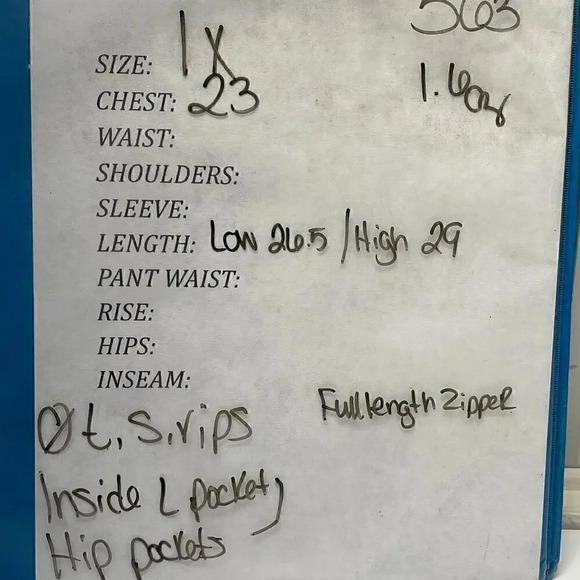 563
SIZE: 1X
1.6oz
CHEST: 23
WAIST:
SHOULDERS:
SLEEVE:
LENGTH: Low 26.5 / High 29
PANT WAIST:
RISE:
HIPS:
INSEAM:
Full length Zipper
Ø t, s, rips
Inside L pocket,
Hip pockets